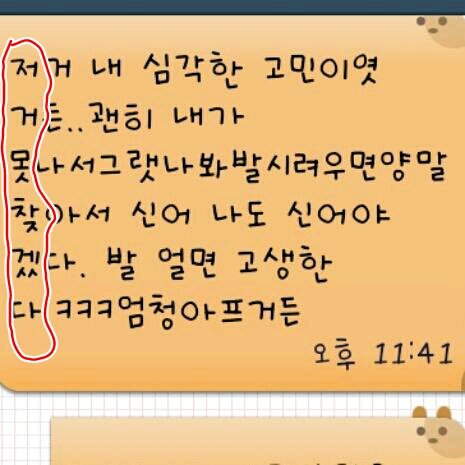 저거 내 심각한 고민이엿
거든..괜히 내가
못나서그랫나봐발시려우면양말
찾아서 신어 나도 신어야
겠다. 발 얼면 고생한
다ㅋㅋㅋ엄청아프거든
오후 11:41